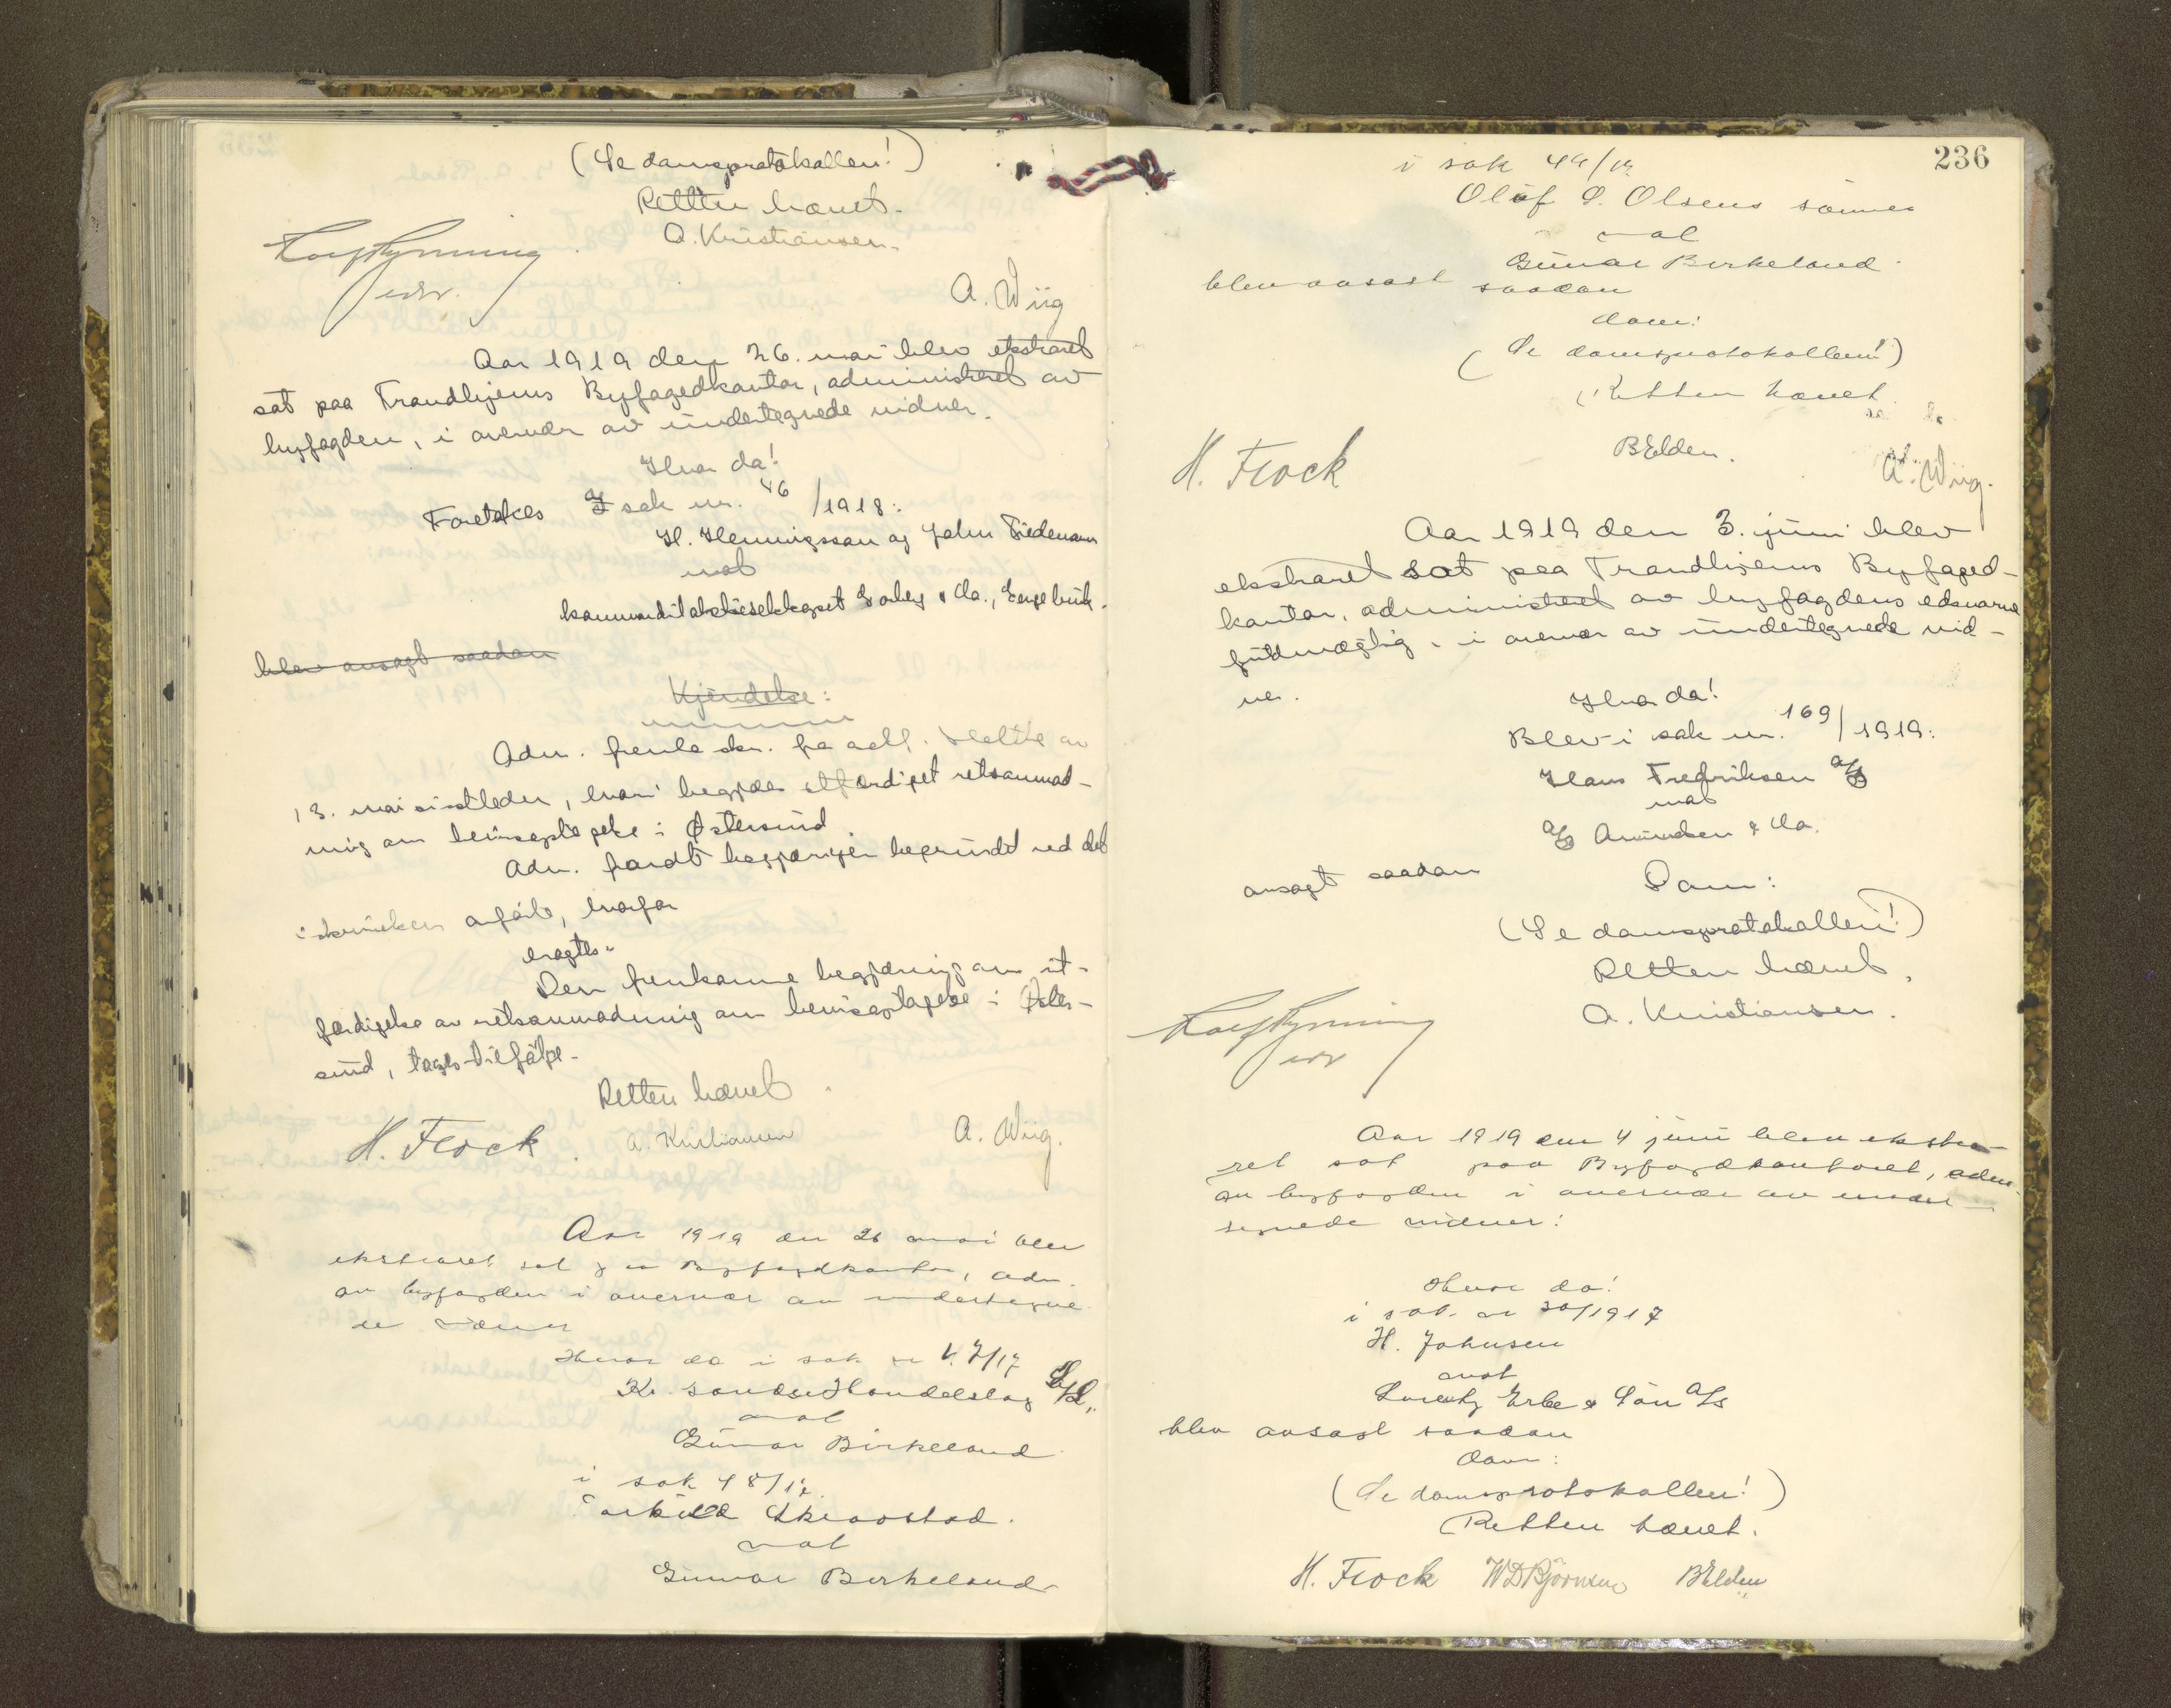 (Se domsprotokollen!)
Retten hævet.
A. Kristiansen.
A. Wiig
Aar 1919 den 26. mai blev ekstraret
sat paa Trondhjems Byfogedkontor, administreret av
byfogden, i overvær av undertegnede vidner.
Hvor da!
Foretokes I sak nr. 46/1918:
H. Henningsson og John Tiedemann
mot
kommanditaktieselskapet Sorley & Co.,
blev avsagt saadan
Kjendelse:
Adm. fremla skr. fra adv. av
13. mai sistleden, hvori begjæres utfærdiget retsanmod-
ning om bevisoptagelse i Østersund.
Adm. fandt begjæringen begrundet ved det
i skrivelsen anførte, hvorfor
eragtes:
Den fremkomne begjæring om ut-
færdigelse av retsanmodning om bevisoptagelse i Øster-
sund, tages tilfølge.
Retten hævet.
H. Frock. A. Kristiansen A. Wiig.
Aar 1919 den 26 mai blev
ekstraret sat paa Byfogdkontor, adm.
av byfogden i overvær av undertegne
de vidner
Hvor da i sak nr 47/17
Kr.sands Handelslag
mot
Gunnar Birkeland
i sak 48/17
Torkild Skraastad.
mot
Gunnar Birkeland
236
i sak 49/17
Oluf S. Olsens sønner
mot
Gunnar Birkeland
blev avsagt saadan
dom:
(Se domsprotokollen!)
Retten hævet.
H. Frock BElden. A. Wiig.
Aar 1919 den 3. juni blev
ekstraret sat paa Trondhjems Byfoged-
kontor, administreret av byfogdens edsvorne
fuldmægtig, i overvær av undertegnede vid-
ner.
Hvor da!
Blev i sak nr. 169/1919:
Hans Fredriksen A/S
mot
A/S Amundsen & Co.
avsagt saadan
Dom:
(Se domsprotokollen!)
Retten hævet.
A. Kristiansen.
Aar 1919 den 4 juni blev ekstra-
ret sat paa Byfogdkontoret, adm.
av byfogden i overvær av under-
tegnede vidner:
Hvor da!
i sak nr 30/1917
H. Johnsen
mot
Lorentz Erbe & Søn A/S
blev avsagt saadan
dom:
(Se domsprotokollen!)
Retten hævet.
H. Frock WDBjørnsen BElden